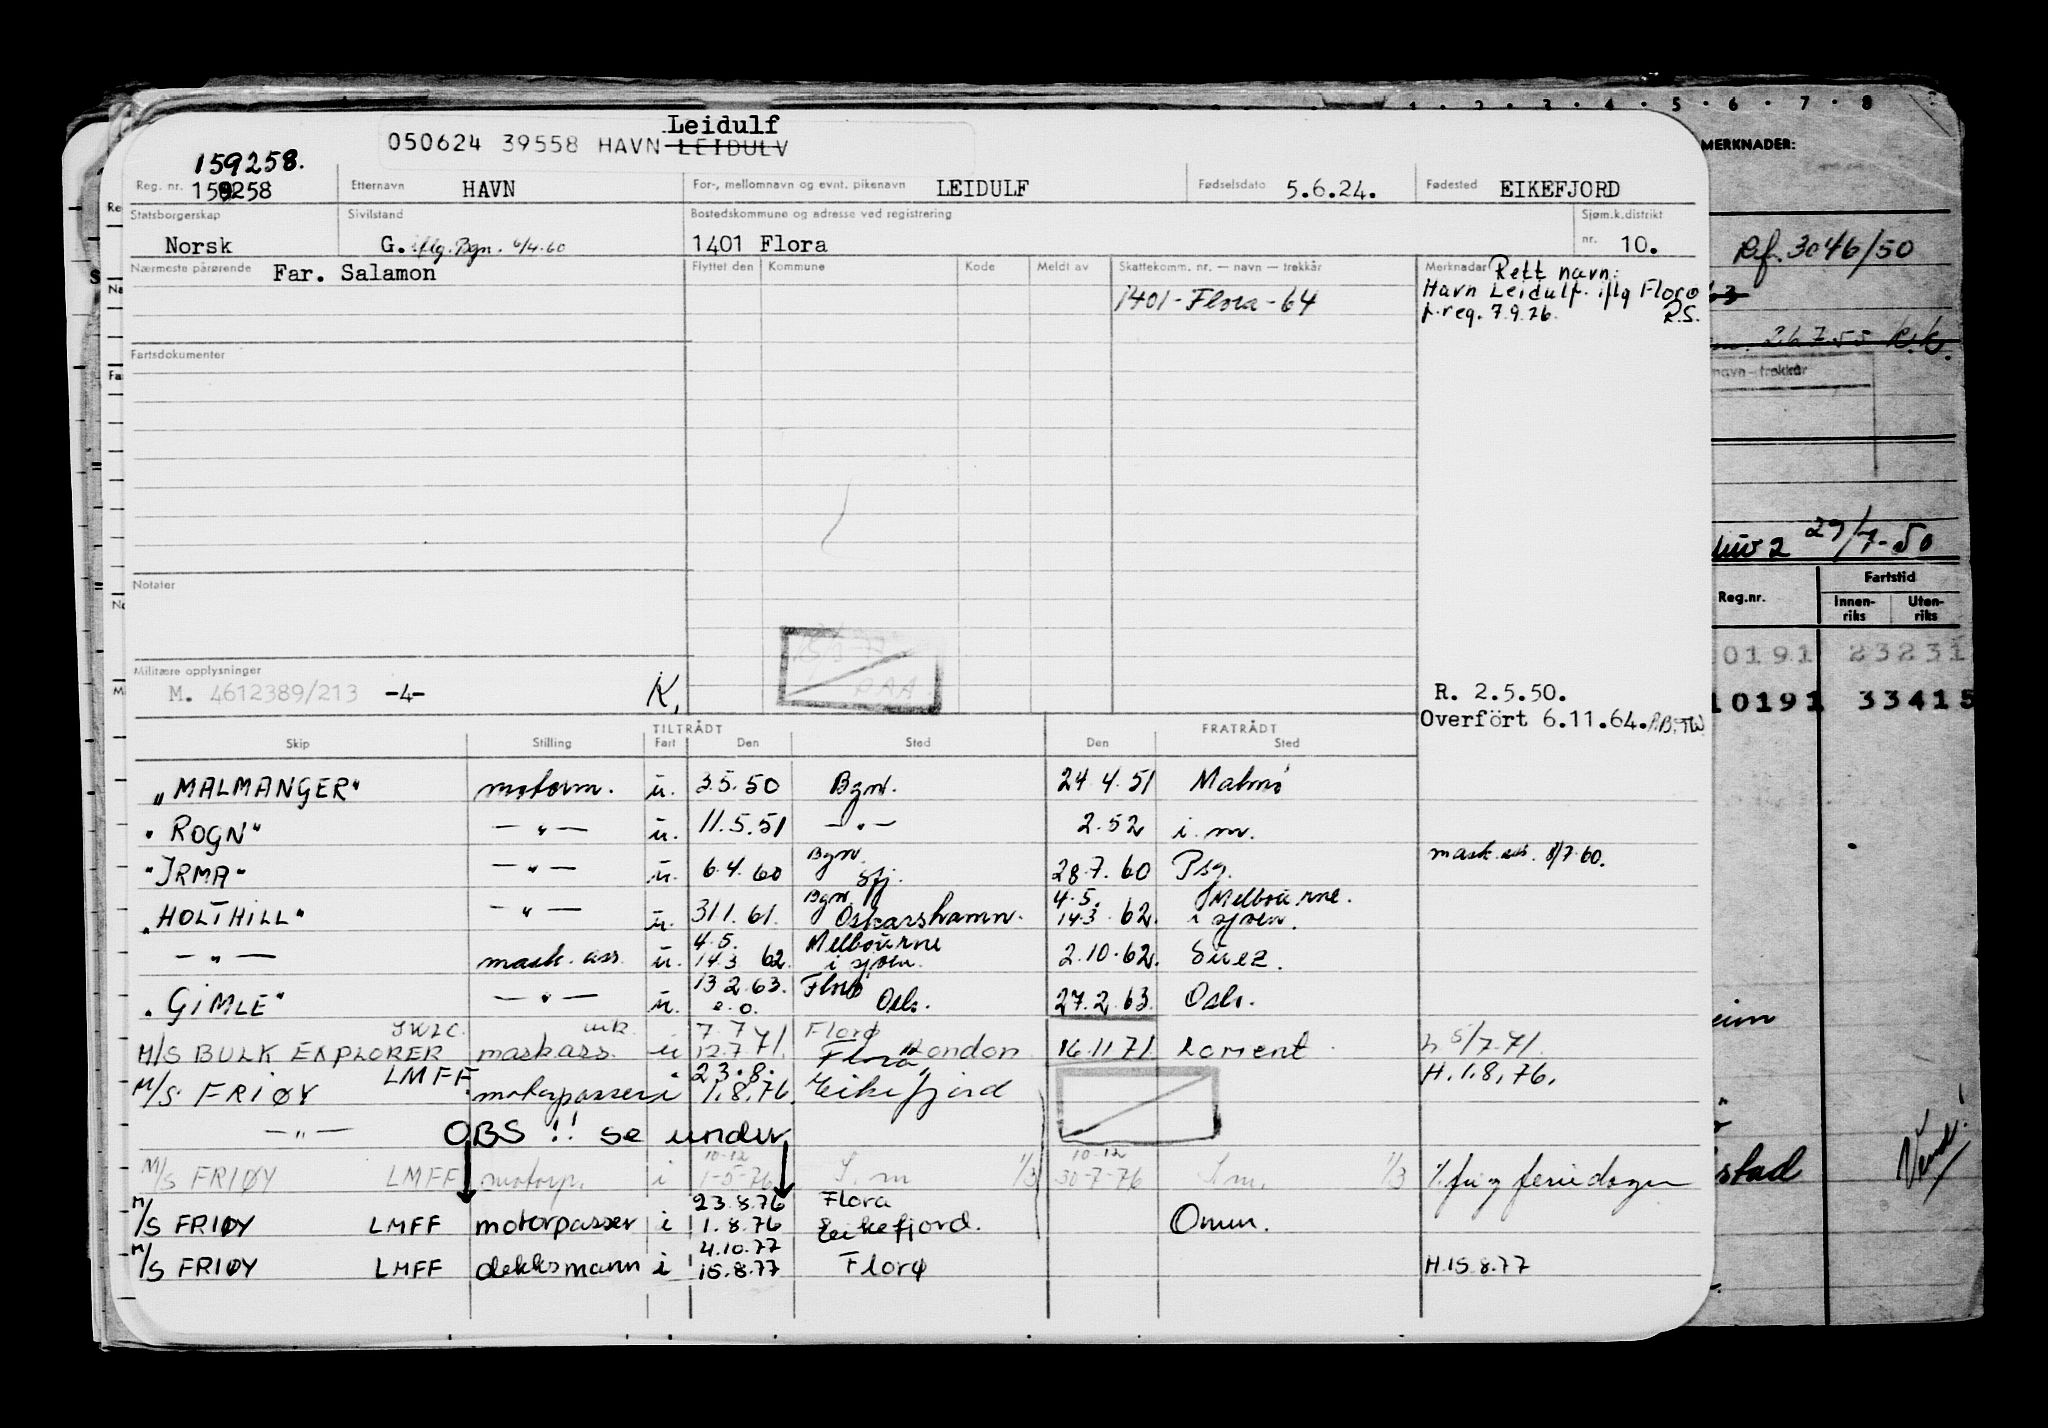 Leidulf
050624 39558 HAVN LEIDULV
159258.
Reg. nr. 159258 Etternavn HAVN For-, mellomnavn og evnt. pikenavn LEIDULF Fødselsdato 5.6.24. Fødested EIKEFJORD
Statsborgerskap Sivilstand Bostedskommune og adresse ved registrering Sjøm.k.distrikt
Norsk G. iflg. Bgn. 6/4.60 1401 Flora nr. 10.
Nærmeste pårørende Far. Salamon Flyttet den Kommune Kode Meldt av Skattekomm. nr. — navn — trekkår Merknader Rett navn:
1401 - Flora - 64 Havn Leidulf. iflg Florø
f.reg. 7.9.26. R.S.
Fartsdokumenter
Notater
Militære opplysninger
M. 4612389/213 -4- K.
R. 2.5.50.
Overført 6.11.64.
TILTRÅDT FRATRÅDT
Skip Stilling Fart Den Sted Den Sted
"MALMANGER" motorm. u. 3.5.50 Bgn. 24.4.51 Malmø
"ROGN" — " — u. 11.5.51 — " — 2.52 i. m.
"IRMA" — " — u. 6.4.60 Bgn. Sfj. 28.7.60 Psg. mask. ass. 8/7.60.
"HOLTHILL" — " — u. 31.1.61. Bgn. Oskarshamn. 4.5. 14.3.62. Melbourne. i sjøen.
— " — mask. ass. u. 4.5. 14.3 62. Melbourne i sjøen. 2.10.62. Suez.
"GIMLE" — " — u. 13.2.63. e.o. Florø Oslo. 27.2.63. Oslo.
M/S BULK EXPLORER maskass. u 7.7 12.7 71. Florø London 16.11 71. Lorient h 5/7.71.
M/S FRIØY LMFF motorpasser i 23.8. 1.8.76. Eikefjord H.1.8.76.
— " — OBS !! se under
M/S FRIØY LMFF motorp. i 10-12 1-5-76 S.m 1/3 10-12 30-7-76 S.m. 1/3
M/S FRIØY LMFF motorpasser i 23.8.76 1.8.76 Flora Eikefjord. Omm.
M/S FRIØY LMFF dekksmann i 4.10.77 15.8.77 Florø H.15.8.77
1 . 2 . 3 . 4 . 5 . 6 . 7 . 8
MERKNADER:
Rf. 3046/50
26.7.55 K.K.
navn — trekkår
29/7-50
Reg.nr. Fartstid
Innen-riks Uten-riks
0191 23231
10191 33415